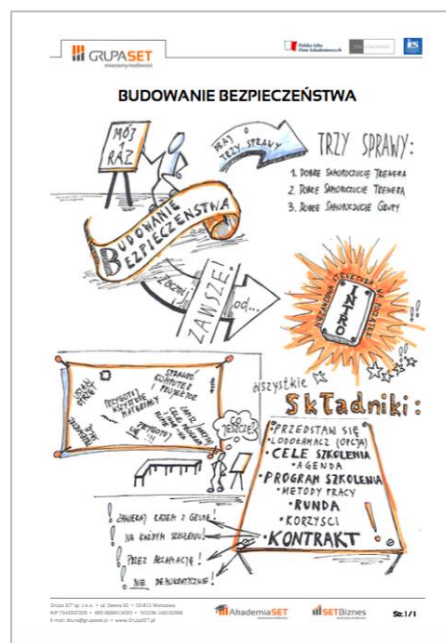 GRUPASET
stwarzamy możliwości
Polska Izba
Firm Szkoleniowych
ies
BUDOWANIE BEZPIECZEŃSTWA
MÓJ
1
RAZ
DBAJ O
TRZY SPRAWY
TRZY SPRAWY:
1. DOBRE SAMOPOCZUCIE TRENERA
2. DOBRE SAMOPOCZUCIE TRENERA
3. DOBRE SAMOPOCZUCIE GRUPY
BUDOWANIE
BEZPIECZEŃSTWA
ZACZNIJ
ZAWSZE!
od...
NA POCZĄTEK
INTRO
SPRAWDŹ
KOMPUTER
I PROJEKTOR
PRZYGOTUJ
WSZYSTKIE
MATERIAŁY
CO
JESZCZE?
wszystkie
Składniki:
• PRZEDSTAW SIĘ
• LODOŁAMACZ (OPCJA)
• CELE SZKOLENIA
• AGENDA
• PROGRAM SZKOLENIA
• METODY PRACY
• RUNDA
• KORZYŚCI
• KONTRAKT
! ZAWIERAJ RAZEM Z GRUPĄ!
! NA KAŻDYM SZKOLENIU!
! PRZEZ AKLAMACJĘ!
! NIE DEMOKRATYCZNIE!
Grupa SET sp. z o.o.
E-mail: biuro@grupaset.pl • www.GrupaSET.pl
AkademiaSET
SETBiznes
Str. 1 / 1